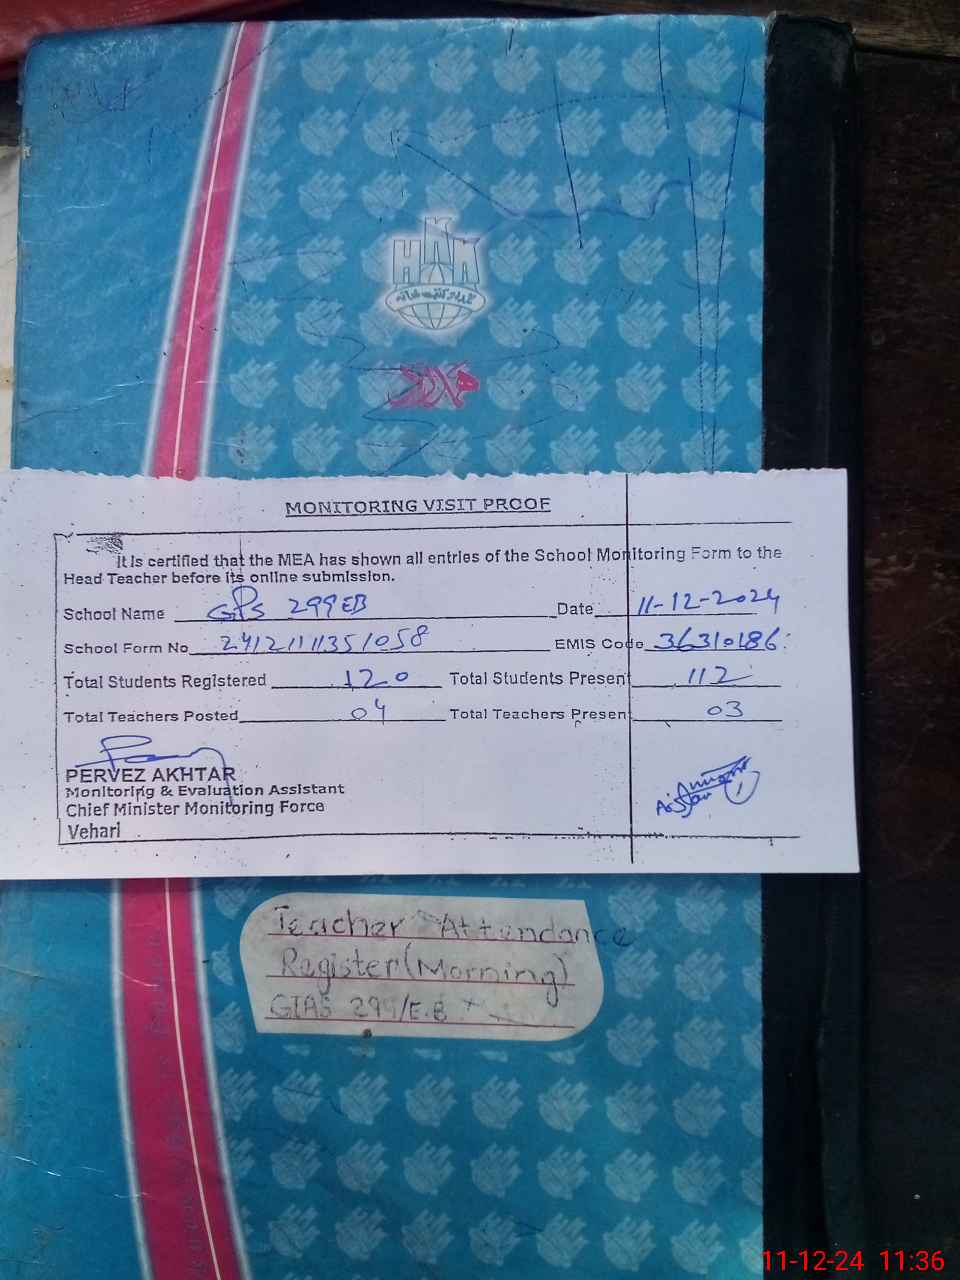 MONITORING VISIT PROOF
It is certified that the MEA has shown all entries of the School Monitoring Form to the
Head Teacher before its online submission.
School Name GPS 299EB Date 11-12-2024
School Form No 2412111351058 EMIS Code 36310186
Total Students Registered 120 Total Students Present 112
Total Teachers Posted 04 Total Teachers Present 03
PERVEZ AKHTAR
Monitoring & Evaluation Assistant
Chief Minister Monitoring Force
Vehari
Teacher Attendance
Register (Morning)
299/E.B
11-12-24 11:36